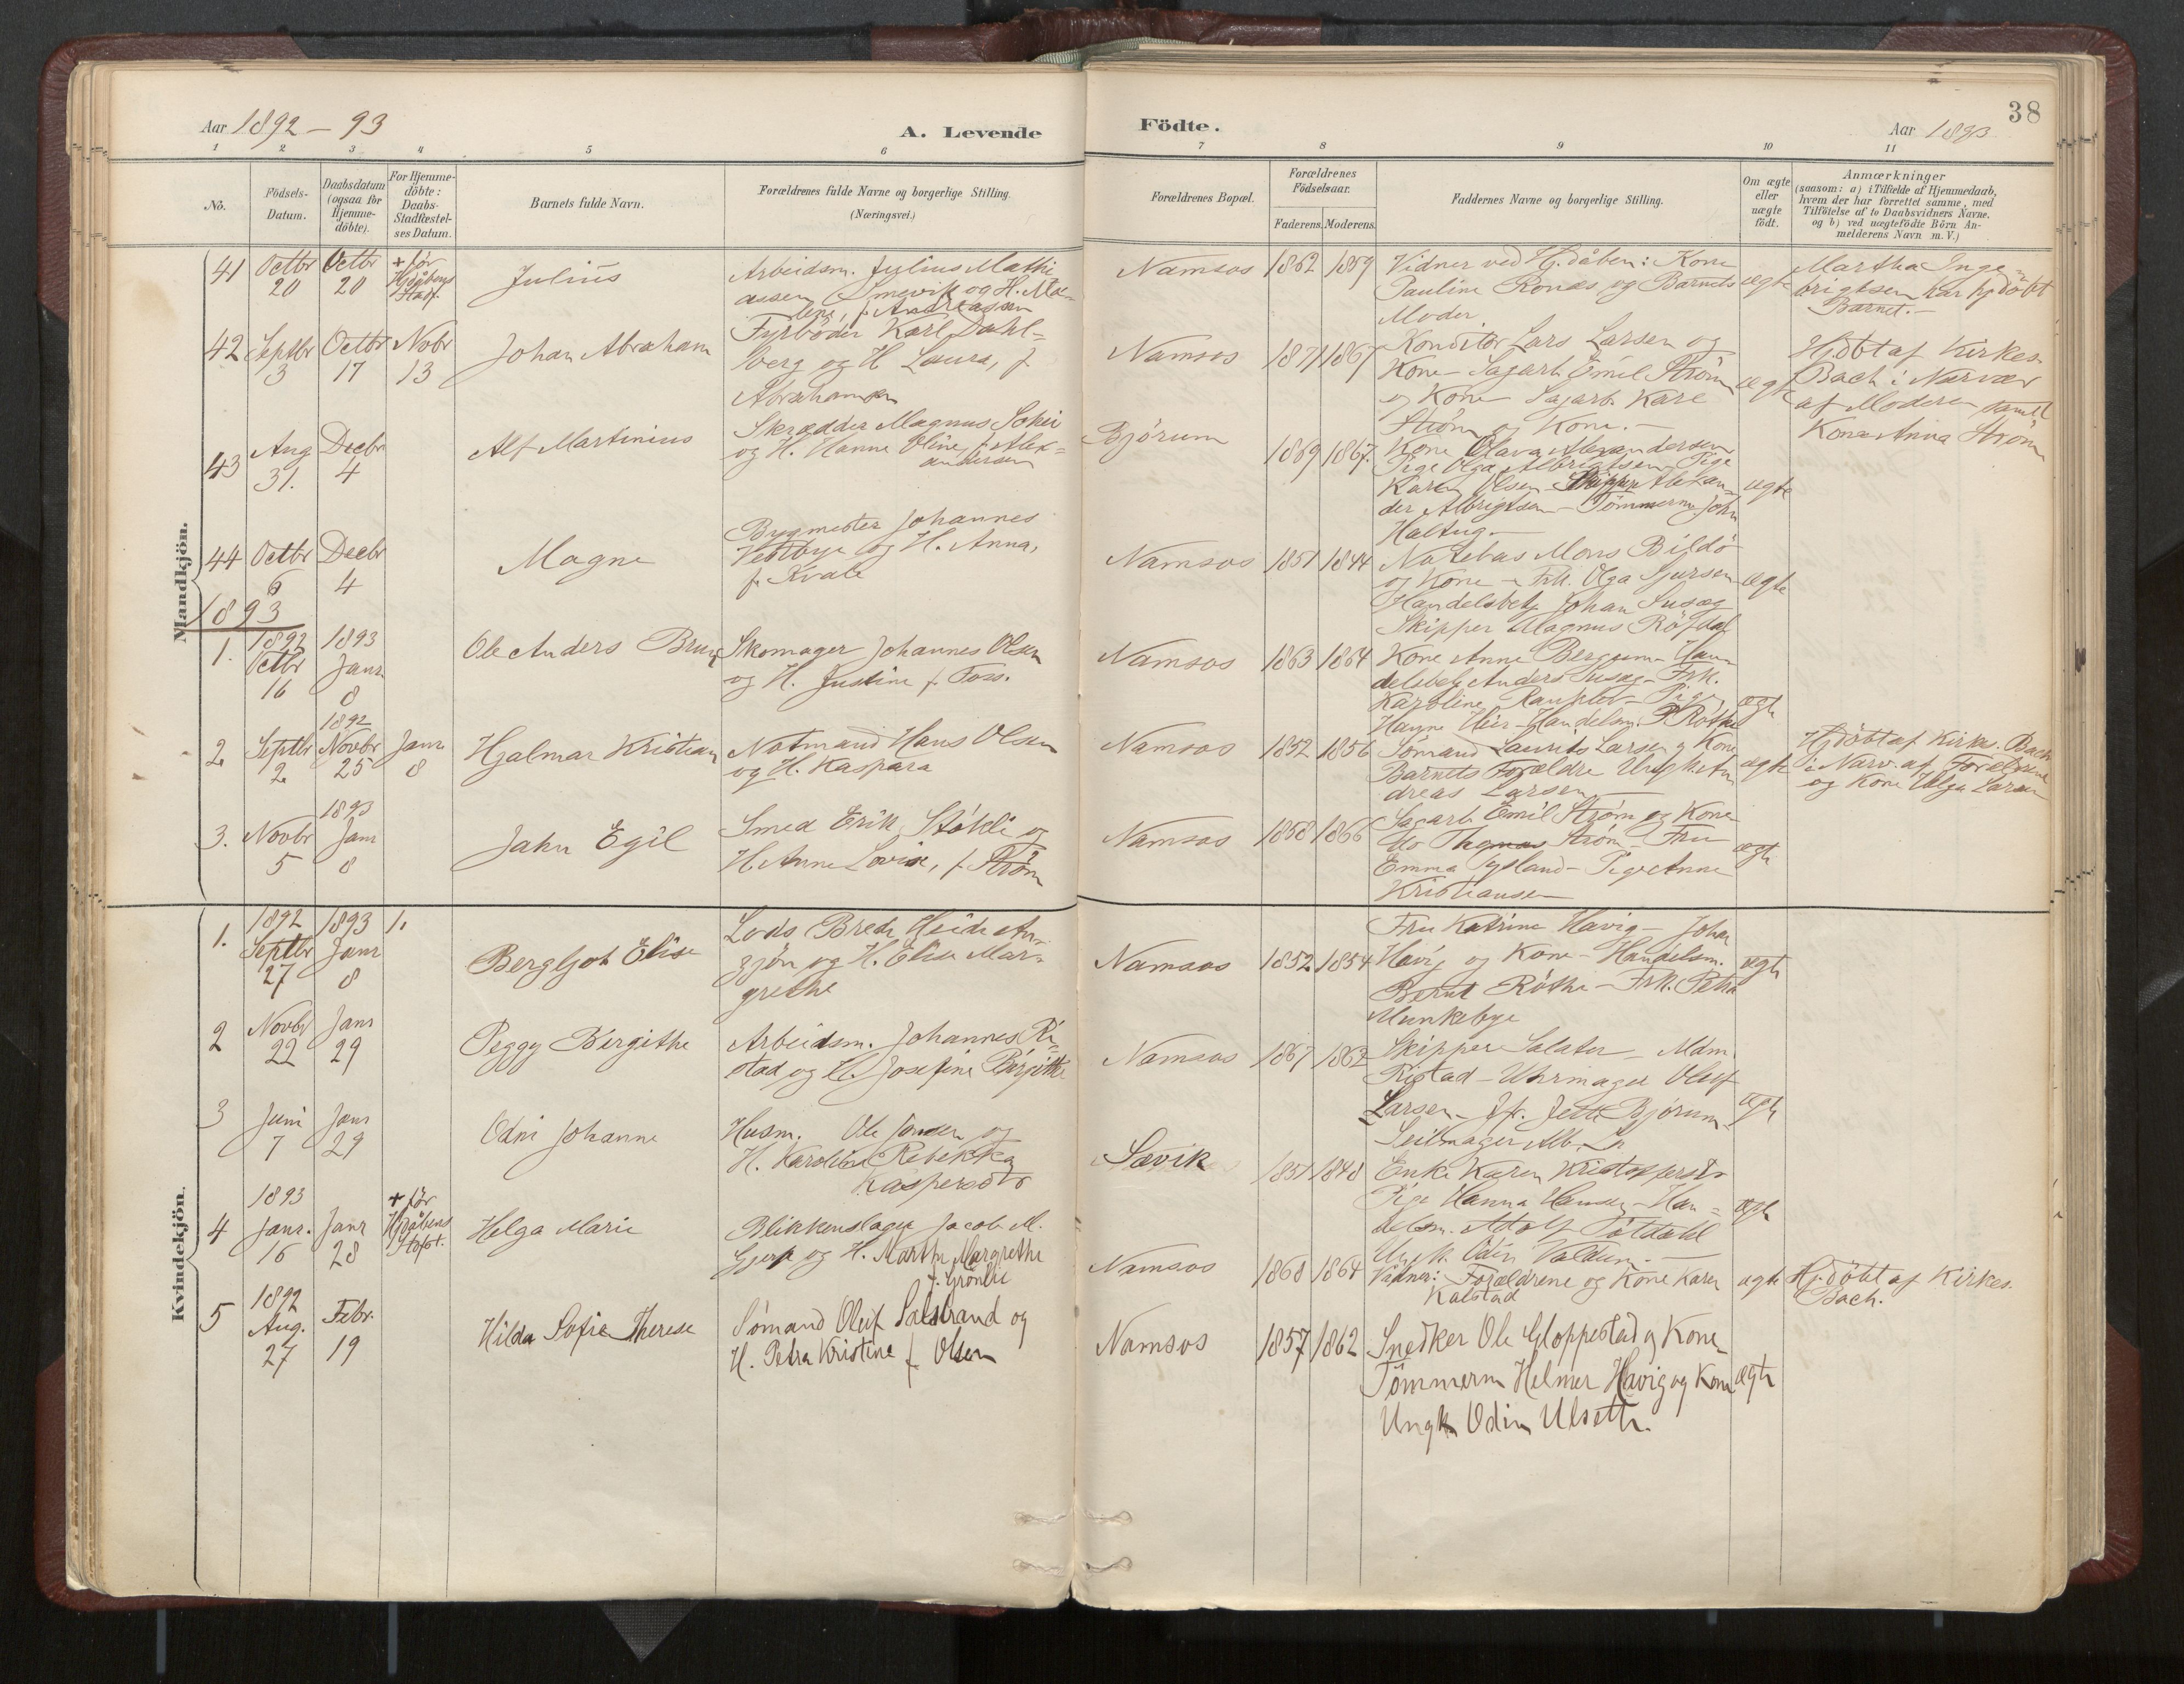 Aar 1892 - 93
A. Levende
Födte.
Aar 1893
38
1 2 3 4 5 6 7 8 9 10 11
No.
Födsels-
Datum.
Daabsdatum
(ogsaa for
Hjemme-
döbte).
For Hjemme-
döbte:
Daabs-
Stadfæstel-
ses Datum.
Barnets fulde Navn.
Forældrenes fulde Navne og borgerlige Stilling.
(Næringsvei.)
Forældrenes Bopæl.
Forældrenes
Födselsaar.
Faderens. Moderens.
Faddernes Navne og borgerlige Stilling.
Om ægte
eller
uægte
födt.
Anmærkninger
(saasom: a) i Tilfælde af Hjemmedaab,
hvem der har forrettet samme, med
Tilföielse af to Daabsvidners Navne.
og b) ved uægtefödte Börn An-
melderens Navn m. V.)
Mandkjön.
41
Octbr
20
Octbr
20
+ før
Hjdåbens
Stadf.
Julius
Arbeidsm. Julius Mathi
assen Smevik og H. Ma-
lene, f. Andreassen
Namsos
1862 1859
Vidner ved Hj.dåben: Kone
Pauline Ronæs og Barnets
Moder
ægte
Martha Inge-
brigtsen har hjdöbt
Barnet.-
42
Septbr
3
Octbr
17
Novbr
13
Johan Abraham
Fyrböder Karl Dahl-
berg og H. Laura, f.
Abrahamsen
Namsos
1871 1867
Konditor Lars Larsen og
Kone - Sagarb. Emil Strøm
og Kone Sagarb. Kare
Strøm og Kone.-
ægte
Hjdöbt af Kirkes.
Bach i Nærvær
af Moderen samt
Kone Anna Strøm
43
Aug
31.
Decbr
4
Alf Martinius
Skrædder Magnus
og H. Hanne Oline, f. Alex-
andersen
Bjørum
1869 1867.
Kone Olava Alexandersen
Pige Olga Albrigtsen - Pige
Karen Olsen - Skipper Alexan-
der Albrigtsen - Tömmerm John
Haltug -
ægte
44
Octbr
6
Decbr
4
Magne
Bygmester Johannes
Vestbye og H. Anna,
f. Kvale
Namsos
1851 1844
Notebas Mons Bildö
og Kone - Frk. Olga Sjursen
Handelsbetj. Johan Susæg
Skipper Magnus
ægte
1893
1.
1892
Octbr
16
1893
Janr
8
Ole Anders Brun
Skomager Johannes Olsen
og H. Justine f. Foss.
Namsos
1863 1864
Kone Anne Bergum - Han-
delsbetj Anders Susæg - Frk.
Karoline - Pige
Hanne - Handelsm. P. Röthe
ægte
2
Septbr
2
1892
Novbr
25
Janr
8
Hjalmar Kristian
Notmand Hans Olsen
og H. Kaspara
Namsos
1852 1856
Sömand Laurits Larsen og Kone
Barnets Forældre Ungk. An
dreas Larsen
ægte
Hjdöbt af Kirkes. Bach
i Nærv. af Forældrene
og Kone Helga Larsen
3.
Novbr
5
1893
Janr
8
Jahn Egil
Smed Erik Stökli og
H. Anne Lovise, f. Strøm
Namsos
1858 1866
Sagarb. Emil Strøm og Kone
Thomas Strøm - Fru
Emma Tysland - Pige Anne
Kristiansen
ægte
Kvindekjön.
1.
1892
Septbr
27
1893
Janr
8
1.
Bergljot Elise
Lods Brede Heide An-
zjön og H. Elise Mar-
grethe
Namsos
1852 1854
Fru Katrine Havig - Johan
Havig og Kone - Handelsm.
Bernt Röthe - Frk. Petra
Munkebye
ægte
2
Novbr
22
Janr
29
Peggy Birgithe
Arbeidsm. Johannes Ri-
stad og H. Josefine Birgitte
Namsos
1867 1862
Skipper Salater - Mdm.
Ristad - Uhrmager Oluf
Larsen - Jfr. Bjørum -
Seilmager Alb.
ægte
3
Juni
7
Janr
29
Odni Johanne
Husm. Ole og
H. Karoline Rebekka
Kaspersdtr
Sævik
1851 1848
Enke Karen Kristoffersdtr
Pige Hanna Hansen - Han-
delsm. Adolf
Ungk. Odin
ægte
4
1893
Janr.
16
Janr
28
+ før
Hjdåbens
Stadf.
Helga Marie
Blikkenslager Jacob M.
og H. Martha Margrethe
f. Grönlie
Namsos
1868 1864
Vidner: Forældrene og Kone Karen
Kalstad
ægte
Hjdöbt af Kirkes.
Bach.
5
1892
Aug.
27
Febr.
19
Hilda Sofie Therese
Sömand Oluf Salstrand og
H. Petra Kristine f. Olsen
Namsos
1857 1862
Snedker Ole Gloppestad og Kone -
Tömmerm Helmer Havig og Kone
Ungk Odin Ulseth.
ægte